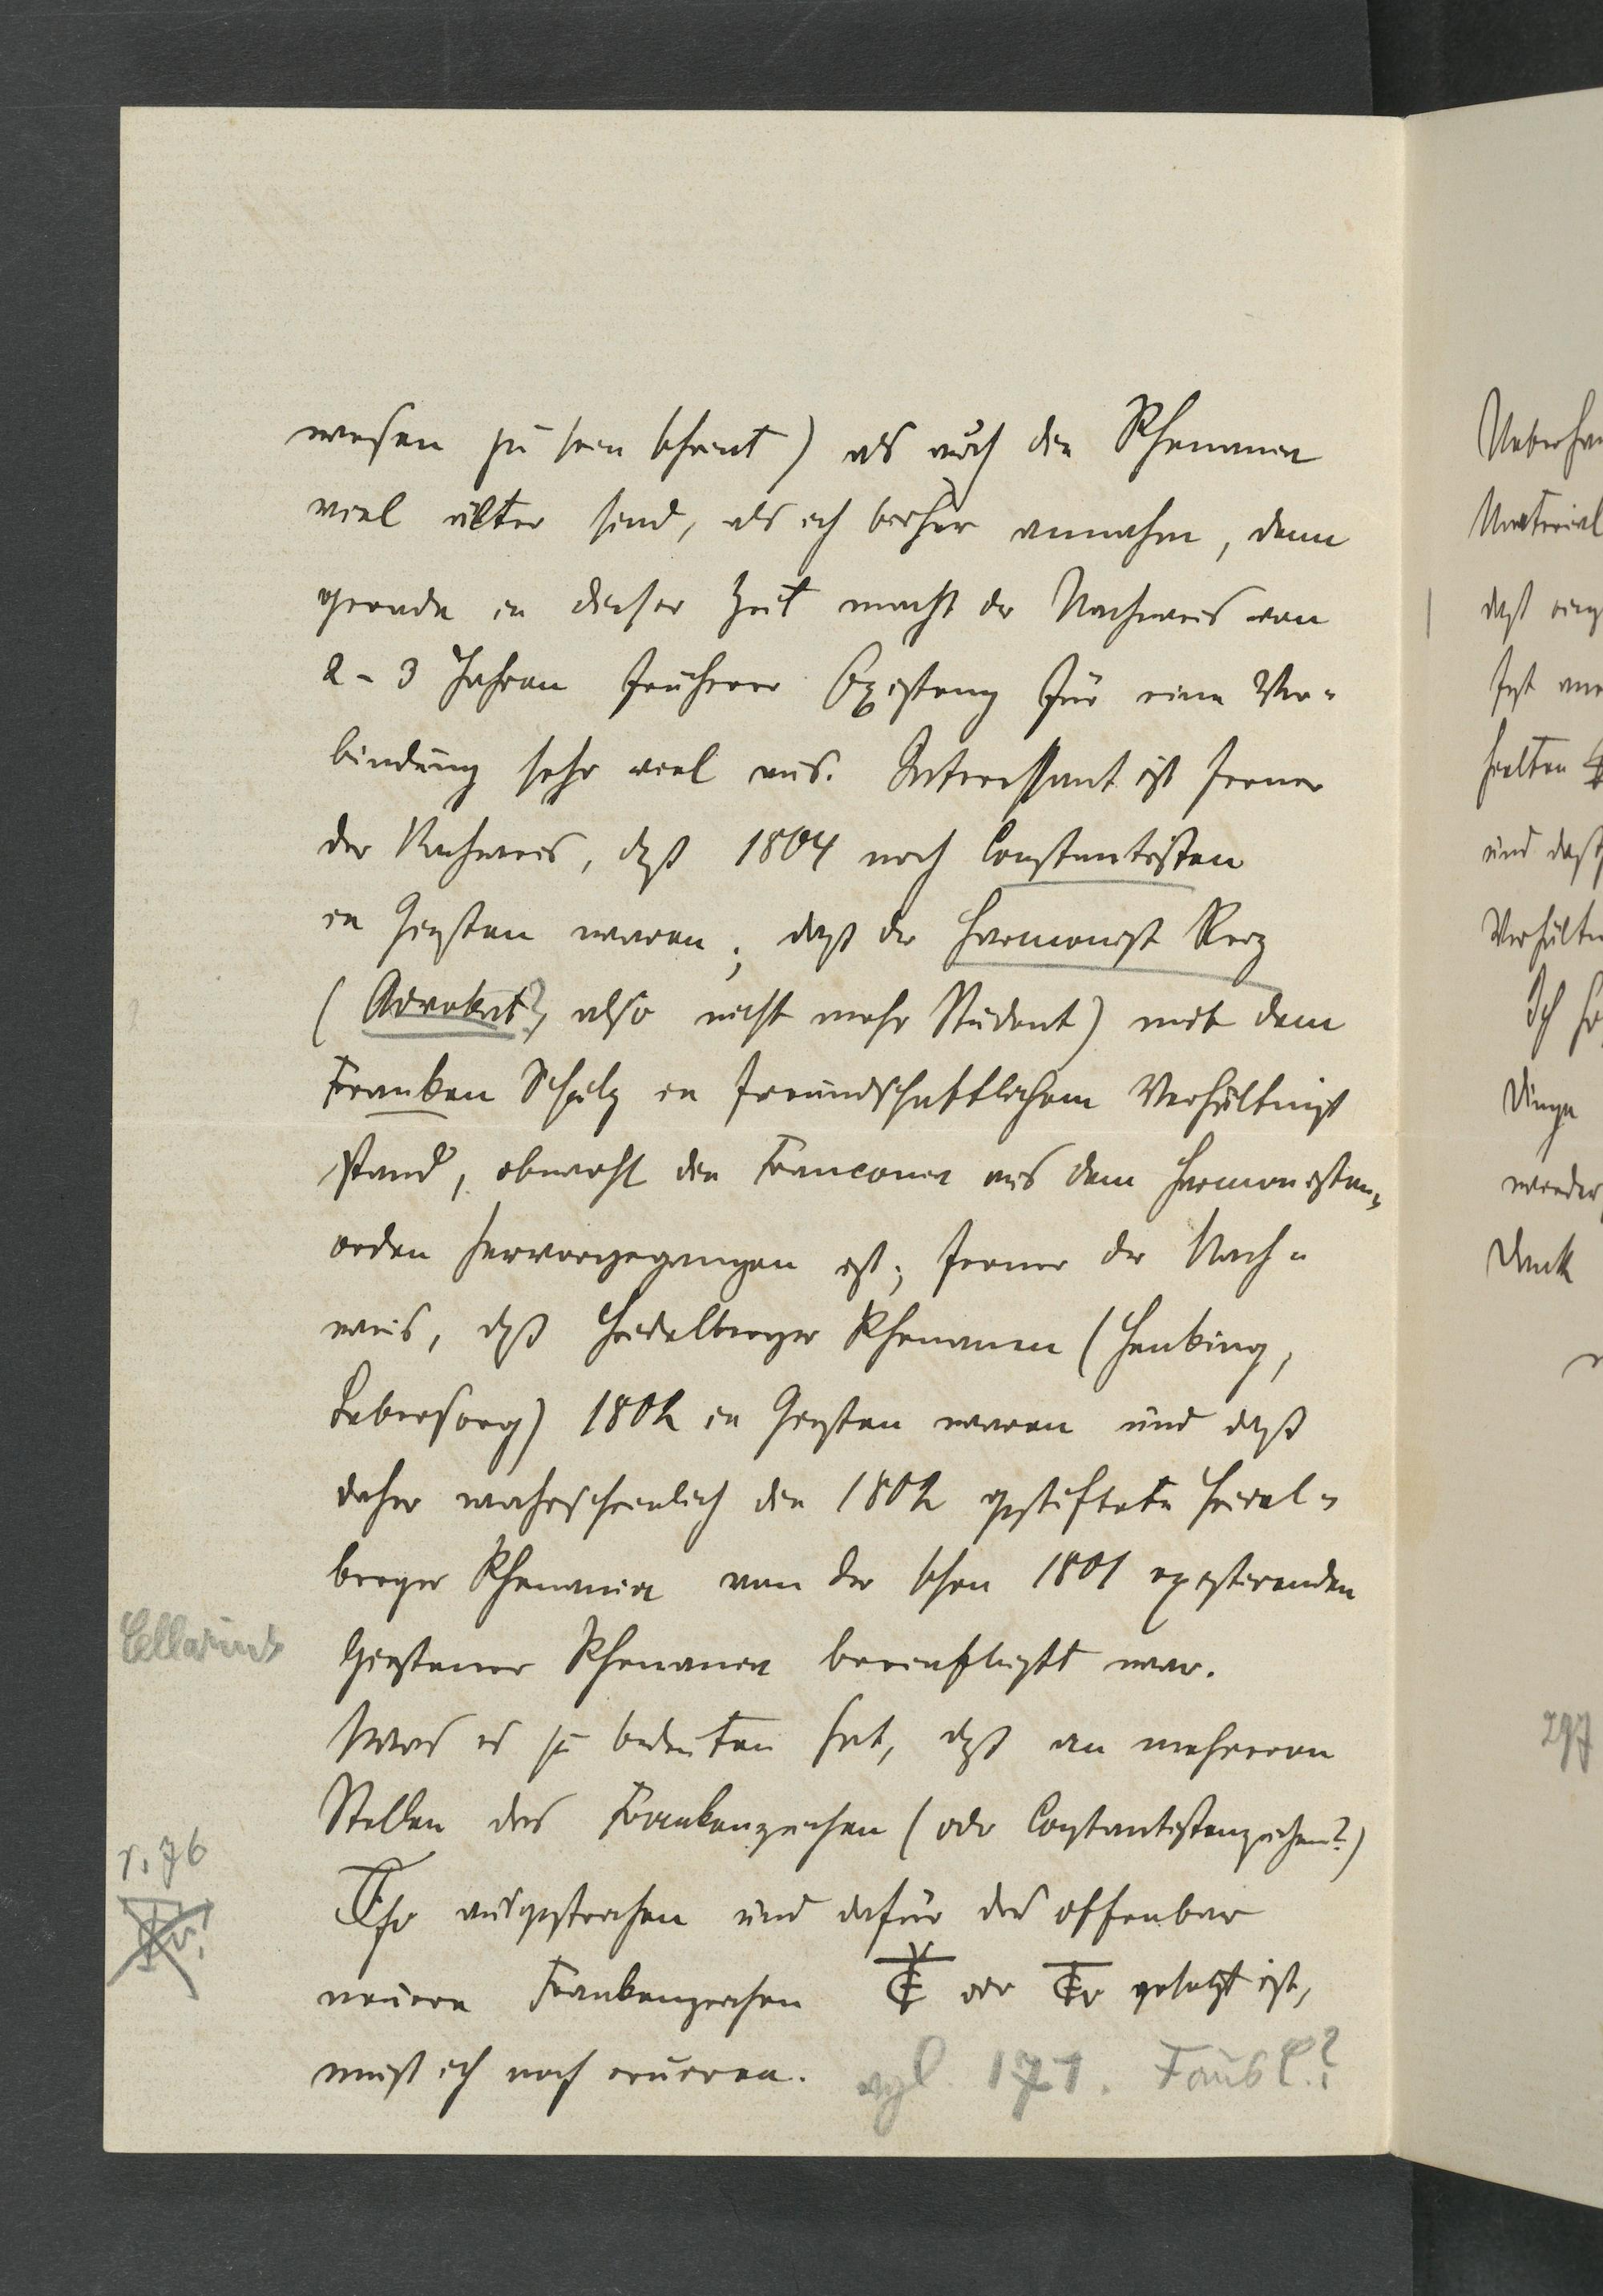 wesen zu sein scheint) als auch die Rhenania
viel älter sind, als ich bisher annahm, denn
gerade in dieser Zeit macht der Nachweis von
2-3 Jahren früherer Existenz für eine Ver-
bindung sehr viel aus. Interessant ist ferner
der Nachweis, daß 1804 noch Constantisten
in Gießen waren; daß der Harmonist
(Advokat?, also nicht mehr Student) mit dem
Franken Schulz in freundschaftlichem Verhältniß
stand, obwohl die Franconia aus dem Harmonisten-
orden hervorgegangen ist; ferner der Nach-
weis, daß Heidelberger Rhenanen (Henking,
Lebersorg) 1802 in Gießen waren und daß
daher wahrscheinlich die 1802 gestiftete Heidel-
berger Rhenania von der schon 1801 existirenden
Gießener Rhenania beeinflußt war.
Was es zu bedeuten hat, daß an mehreren
Stellen das Frankenzeichen (oder Constantistenzeichen?)
ausgestrichen und dafür das offenbar
neuere Frankenzeichen oder gesetzt ist,
muß ich noch eruiren.
vgl. 171.
r. 76
Ueber
Material
daß
halten
und daß
Ich
Dinge
wieder
Dank
297